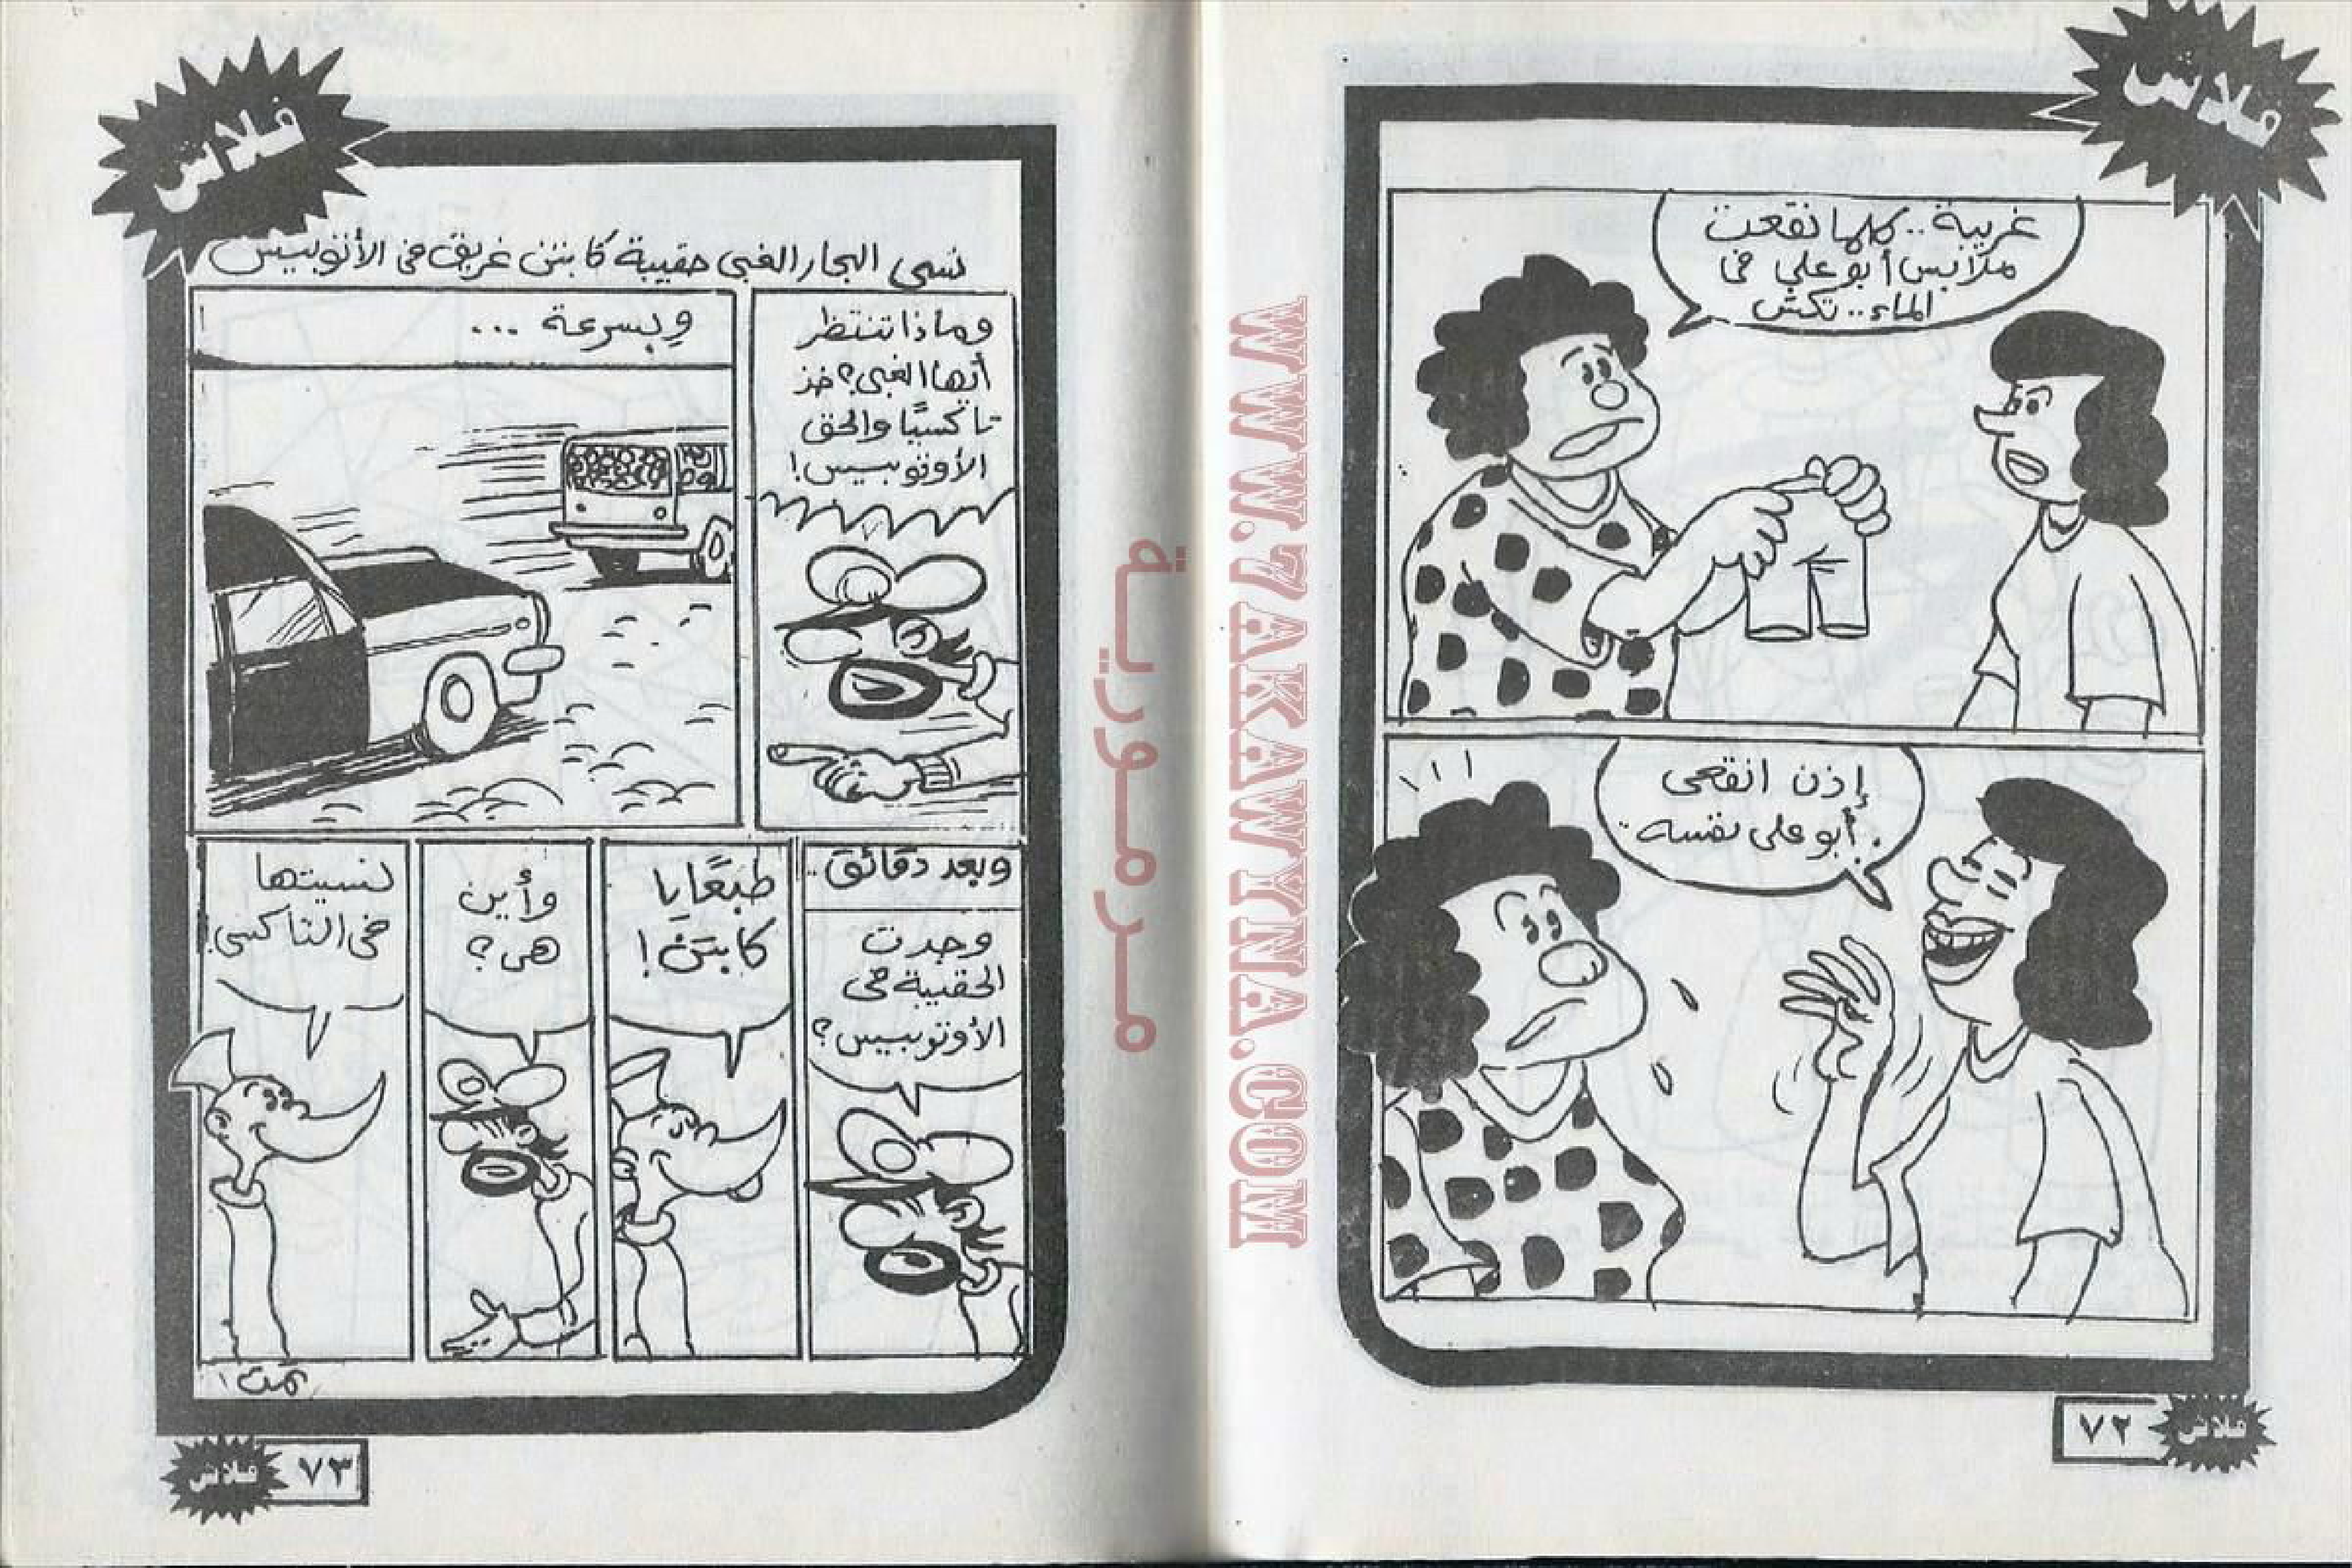 فلاش
غريبة.. كلما نقعت
ملابس أبو علي في
الماء.. تكش
إذن انقعى
أبو على نفسه..
٧٢
فلاش
WWW.7AKAWYNA.COM
مرمورية
فلاش
نسى البحار الغبى حقيبة كابتن غريق فى الأتوبيس
وماذا تنتظر
أيها الغبى؟ خذ
تاكسيًا والحق
الأوتوبيس!
وبسرعة ...
وبعد دقائق..
وجدت
الحقيبة فى
الأوتوبيس؟
طبعًا يا
كابتن!
وأين
هى؟
نسيتها
فى التاكسى!
تمت
٧٣
فلاش